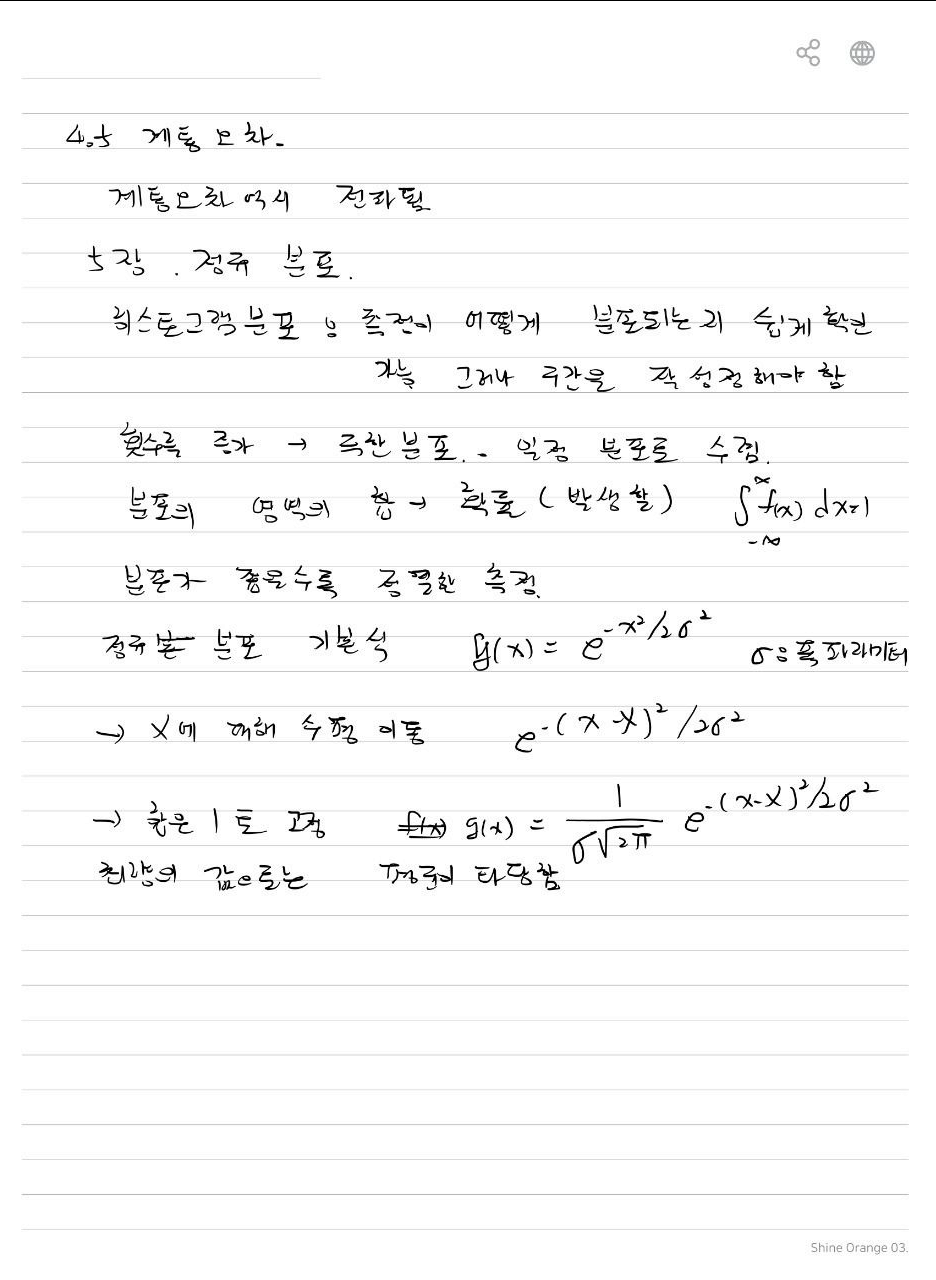 4.5 계통오차.
계통오차 역시 전파됨
5장. 정규 분포.
히스토그램 분포 : 측정이 어떻게 분포되는지 쉽게 확인
가능 그러나 구간을 잘 설정해야 함
횟수를 증가 → 극한분포. - 일정 분포로 수렴.
분포의 영역의 합 → 확률 (발생할) ∫_{-∞}^{∞} f(x) dx=1
분포가 좁을수록 정밀한 측정.
정규 분포 기본식 g(x) = e^{-x²/2σ²} σ:폭 파라미터
→ X에 대해 수평 이동 e^{-(x-X)²/2σ²}
→ 합은 1로 고정 g(x) = 1/(σ√2π) e^{-(x-X)²/2σ²}
최량의 값으로는 평균이 타당함
Shine Orange 03.